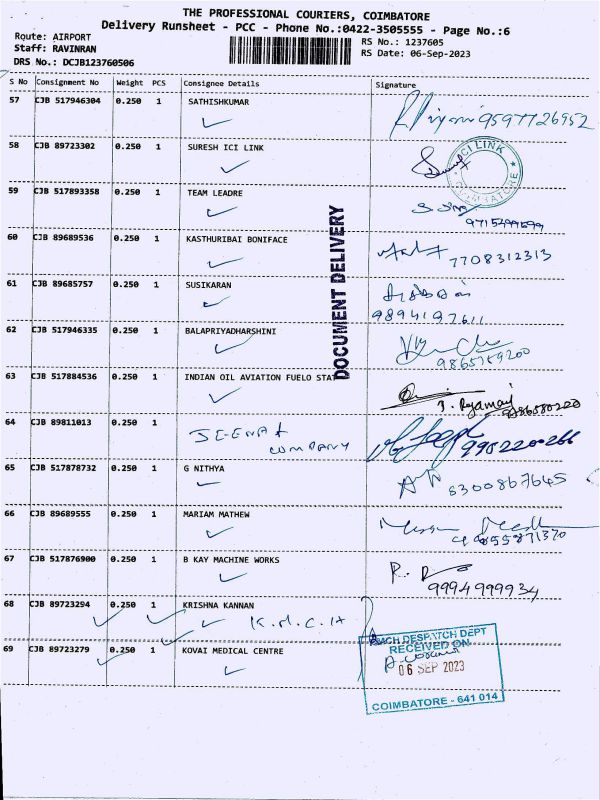 THE PROFESSIONAL COURIERS, COIMBATORE
Delivery Runsheet - PCC - Phone No.:0422-3505555 - Page No.:6
Route: AIRPORT
RS No.: 1237605
Staff: RAVINRAN
RS Date: 06-Sep-2023
DRS No.: DCJB123760506
S No Consignment No Weight PCS Consignee Details Signature
57 CJB 517946304 0.250 1 SATHISHKUMAR 9597726952
58 CJB 89723302 0.250 1 SURESH ICI LINK
ICI LINK
COIMBATORE
59 CJB 517893358 0.250 1 TEAM LEADRE
60 CJB 89689536 0.250 1 KASTHURIBAI BONIFACE 7708312313
61 CJB 89685757 0.250 1 SUSIKARAN
9894197611
62 CJB 517946335 0.250 1 BALAPRIYADHARSHINI
9865759200
DOCUMENT DELIVERY
63 CJB 517884536 0.250 1 INDIAN OIL AVIATION FUELO STAT
64 CJB 89811013 0.250 1
COMPANY
9952200266
65 CJB 517878732 0.250 1 G NITHYA
6300867645
66 CJB 89689555 0.250 1 MARIAM MATHEW
67 CJB 517876900 0.250 1 B KAY MACHINE WORKS
9994999934
68 CJB 89723294 0.250 1 KRISHNA KANNAN
K.M.C.H
69 CJB 89723279 0.250 1 KOVAI MEDICAL CENTRE
DESPATCH DEPT
RECEIVED ON
06 SEP 2023
COIMBATORE - 641 014